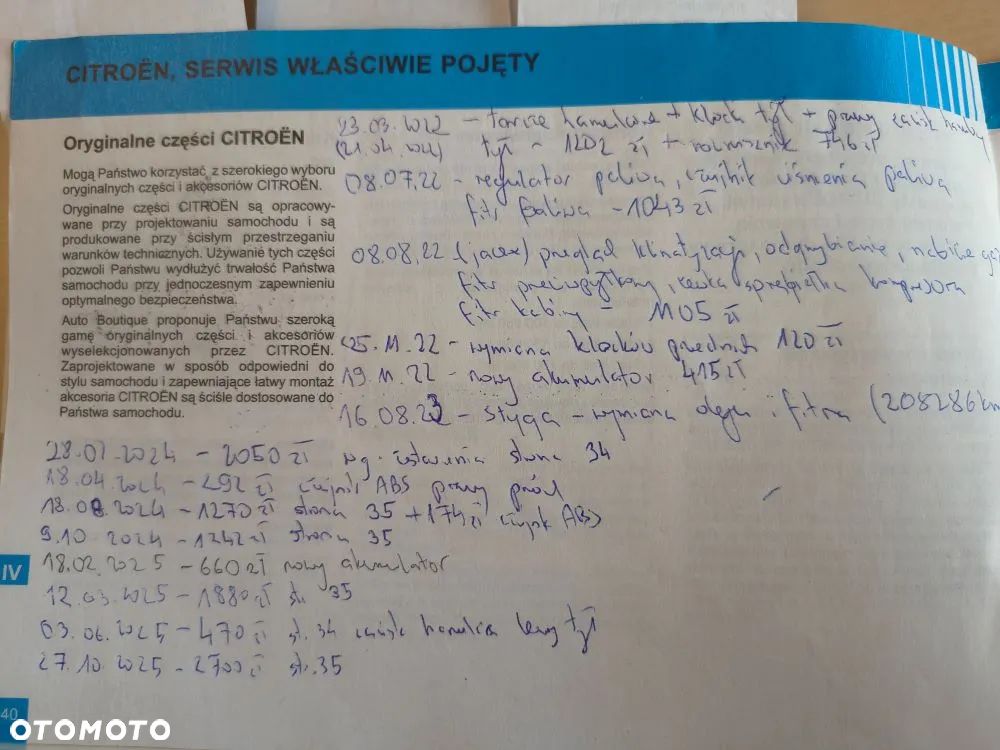 CITROËN, SERWIS WŁAŚCIWIE POJĘTY
Oryginalne części CITROËN
Mogą Państwo korzystać z szerokiego wyboru
oryginalnych części i akcesoriów CITROËN.
Oryginalne części CITROËN są opracowy-
wane przy projektowaniu samochodu i są
produkowane przy ścisłym przestrzeganiu
warunków technicznych. Używanie tych części
pozwoli Państwu wydłużyć trwałość Państwa
samochodu przy jednoczesnym zapewnieniu
optymalnego bezpieczeństwa.
Auto Boutique proponuje Państwu szeroką
gamę oryginalnych części i akcesoriów
wyselekcjonowanych przez CITROËN.
Zaprojektowane w sposób odpowiedni do
stylu samochodu i zapewniające łatwy montaż
akcesoria CITROËN są ściśle dostosowane do
Państwa samochodu.
23.03.2022 - tarcze hamulcowe + klocki tył + prawy zacisk
(21.04.2022) tył - 1202 zł + 746 zł
08.07.22 - regulator paliwa, czujnik ciśnienia paliwa
filtr paliwa - 1043 zł
08.08.22 przegląd klimatyzacji, odgrzybianie, nabicie
filtr przeciwpyłkowy, sprężarka kompresora
filtr kabiny - 1105 zł
25.11.22 - wymiana klocków przednich 120 zł
19.11.22 - nowy akumulator 415 zł
16.08.23 - wymiana oleju i filtra (208286 km
28.02.2024 - 2050 zł wg. zestawienia strona 34
18.04.2024 - 292 zł czujnik ABS prawy przód
18.08.2024 - 1270 zł strona 35 + 174 zł czujnik ABS
9.10.2024 - 1242 zł strona 35
18.02.2025 - 660 zł nowy akumulator
12.03.2025 - 1880 zł str. 35
03.06.2025 - 470 zł st. 34 zacisk hamulca lewy tył
27.10.2025 - 2700 zł str. 35
IV
40
OTOMOTO